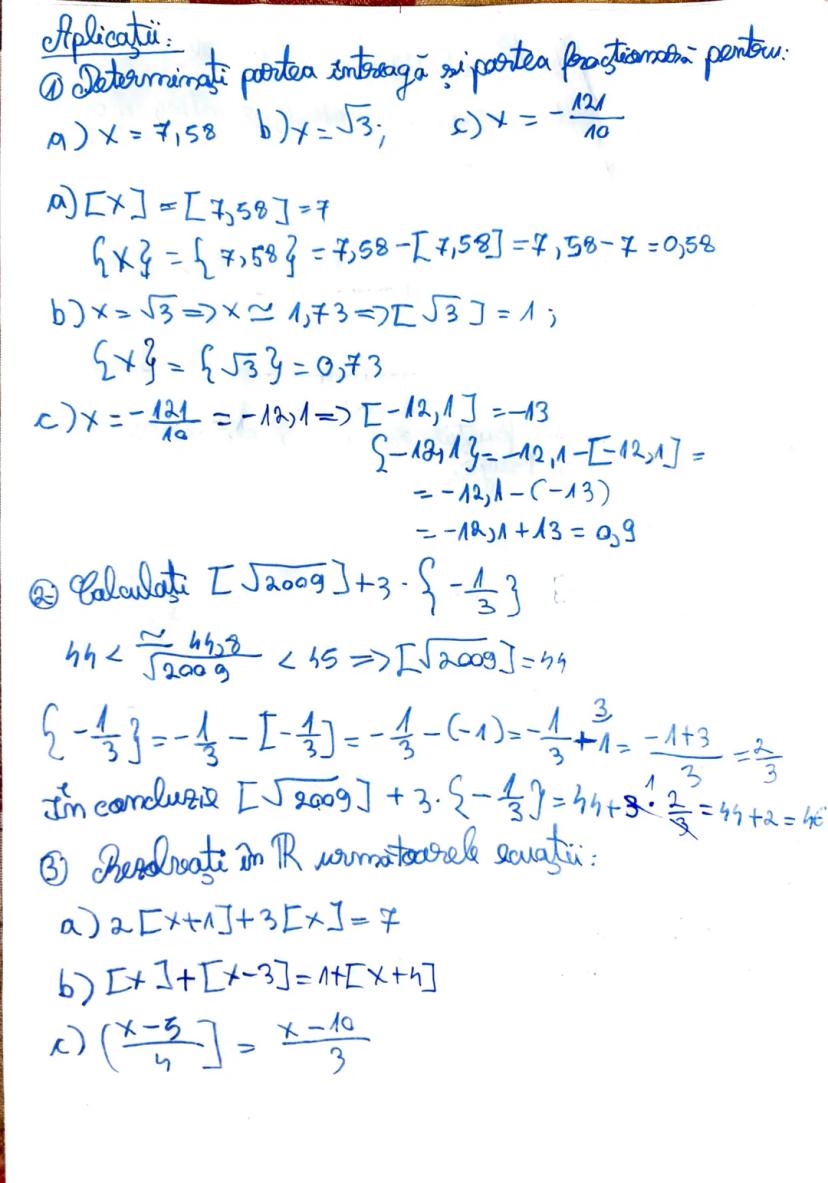 Aplicații:
① Determinați partea întreagă și partea fracționară pentru:
a) x = 7,58 b) x = √3; c) x = -121/10
a) [x] = [7,58] = 7
{x} = {7,58} = 7,58 - [7,58] = 7,58 - 7 = 0,58
b) x = √3 => x ≃ 1,73 => [√3] = 1;
{x} = {√3} = 0,73
c) x = -121/10 = -12,1 => [-12,1] = -13
{-12,1} = -12,1 - [-12,1] =
= -12,1 - (-13)
= -12,1 + 13 = 0,9
② Calculați [√2009] + 3 · {-1/3}
≃ 44,8
44 < √2009 < 45 => [√2009] = 44
{-1/3} = -1/3 - [-1/3] = -1/3 - (-1) = -1/3 + ³⁾1 = (-1+3)/3 = 2/3
În concluzie [√2009] + 3 · {-1/3} = 44 + 3¹ · 2/3 = 44 + 2 = 46
③ Rezolvați în ℝ următoarele ecuații:
a) 2[x+1] + 3[x] = 7
b) [x] + [x-3] = 1 + [x+4]
c) [(x-5)/4] = (x-10)/3